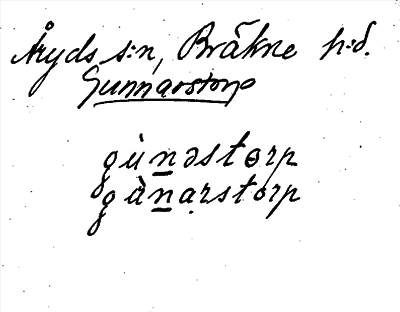 Åryds s:n, Bräkne h:d.
Gunnarstorp
gùn̲əstorp
gàn̲ạrstorp